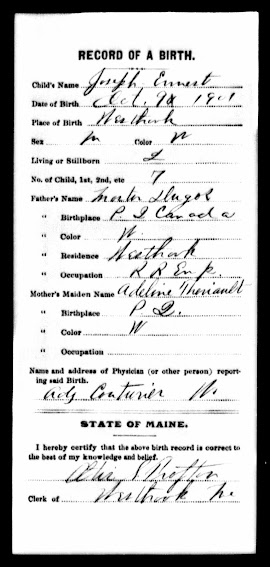 RECORD OF A BIRTH.
Child's Name Joseph Ernest
Date of Birth Oct. 9th 1901
Place of Birth Westbrook
Sex m Color W
Living or Stillborn L
No. of Child, 1st, 2nd, etc 7
Father's Name
" Birthplace P I Canada
" Color W
" Residence Westbrook
" Occupation R R Emp.
Mother's Maiden Name Adeline Theriault
" Birthplace P
" Color W
" Occupation
Name and address of Physician (or other person) report-
ing said Birth.
Couturier W.
STATE OF MAINE.
I hereby certify that the above birth record is correct to
the best of my knowledge and belief.
Clerk of Westbrook Me